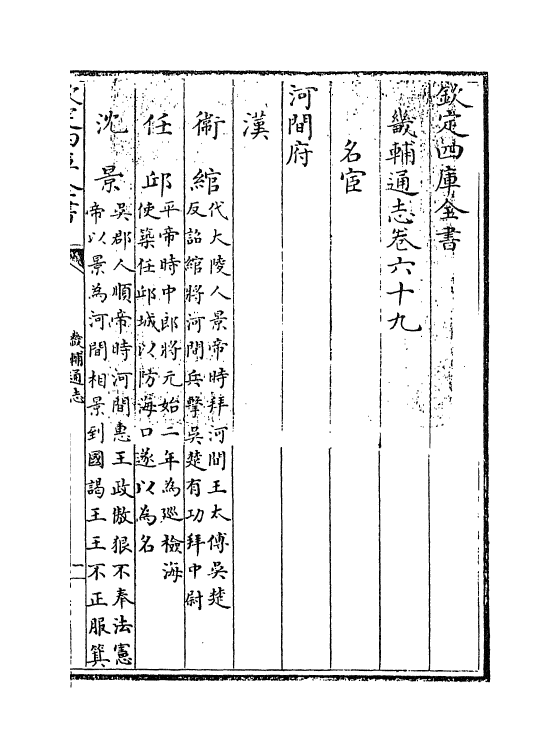 欽定四庫全書
畿輔通志卷六十九
名宦
河間府
漢
衞綰代大陵人景帝時拜河間王太傅吳楚
反詔綰將河間兵擊吳楚有功拜中尉
任邱平帝時中郎將元始二年為廵檢海
使築任邱城以防海口遂以為名
沈景吳郡人順帝時河間惠王政傲狠不奉法憲
帝以景為河間相景到國謁王王不正服箕
欽定四庫全書
畿輔通志
一